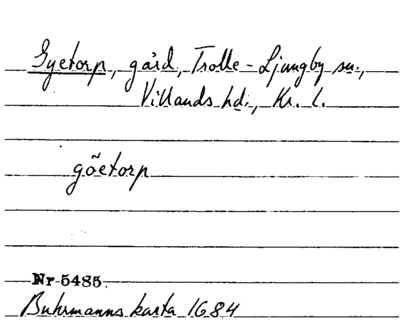 Gyetorp, gård, Trolle-Ljungby sn.,
Villands hd., Kr. l.
gõetorp
Nr 5485.
Buhrmanns karta 1684